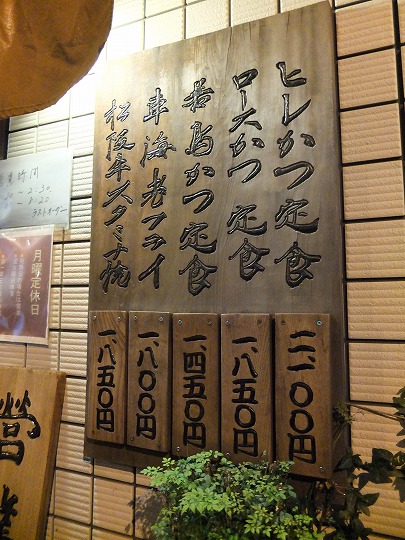 ヒレかつ定食
ロースかつ定食
若鳥かつ定食
車海老フライ
松阪牛スタミナ焼
二、一〇〇円
一、八五〇円
一、四五〇円
一、八〇〇円
一、八五〇円
業時間
2.30
ラストオーダー
月曜定休日
営業